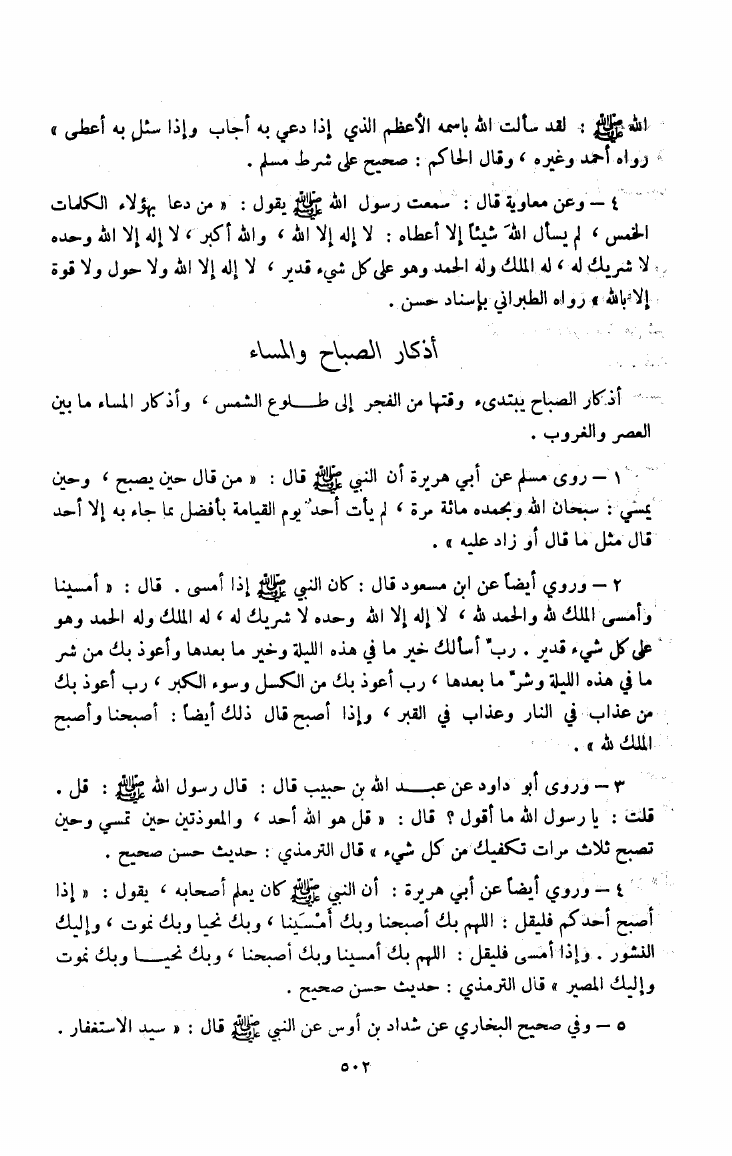 الله ﷺ : لقد سألت الله باسمه الأعظم الذي إذا دعي به أجاب وإذا سئل به أعطى »
رواه أحمد وغيره ، وقال الحاكم : صحيح على شرط مسلم .
٤ – وعن معاوية قال : سمعت رسول الله ﷺ يقول : « من دعا بهؤلاء الكلمات
الخمس ، لم يسأل اللهَ شيئاً إلا أعطاه : لا إله إلا الله ، والله أكبر ، لا إله إلا الله وحده
لا شريك له ، له الملك وله الحمد وهو على كل شيء قدير ، لا إله إلا الله ولا حول ولا قوة
إلا بالله » رواه الطبراني بإسناد حسن .
أذكار الصباح والمساء
أذكار الصباح يبتدىء وقتها من الفجر إلى طلوع الشمس ، وأذكار المساء ما بين
العصر والغروب .
١ – روى مسلم عن أبي هريرة أن النبي ﷺ قال : « من قال حين يصبح ، وحين
يمسي : سبحان الله وبحمده مائة مرة ، لم يأت أحد يوم القيامة بأفضل مما جاء به إلا أحد
قال مثل ما قال أو زاد عليه » .
٢ – وروي أيضاً عن ابن مسعود قال : كان النبي ﷺ إذا أمسى . قال : « أمسينا
وأمسى الملك لله والحمد لله ، لا إله إلا الله وحده لا شريك له ، له الملك وله الحمد وهو
على كل شيء قدير . رب أسألك خير ما في هذه الليلة وخير ما بعدها وأعوذ بك من شر
ما في هذه الليلة وشر ما بعدها ، رب أعوذ بك من الكسل وسوء الكبر ، رب أعوذ بك
من عذاب في النار وعذاب في القبر ، وإذا أصبح قال ذلك أيضاً : أصبحنا وأصبح
الملك لله » .
٣ – وروى أبو داود عن عبد الله بن حبيب قال : قال رسول الله ﷺ : قل .
قلت : يا رسول الله ما أقول ؟ قال : « قل هو الله أحد ، والمعوذتين حين تمسي وحين
تصبح ثلاث مرات تكفيك من كل شيء » قال الترمذي : حديث حسن صحيح .
٤ – وروي أيضاً عن أبي هريرة : أن النبي ﷺ كان يعلم أصحابه ، يقول : « إذا
أصبح أحدكم فليقل : اللهم بك أصبحنا وبك أَمْسَينا ، وبك نحيا وبك نموت ، وإليك
النشور . وإذا أمسى فليقل : اللهم بك أمسينا وبك أصبحنا ، وبك نحيا وبك نموت
وإليك المصير » قال الترمذي : حديث حسن صحيح .
٥ – وفي صحيح البخاري عن شداد بن أوس عن النبي ﷺ قال : « سيد الاستغفار .
٥٠٢